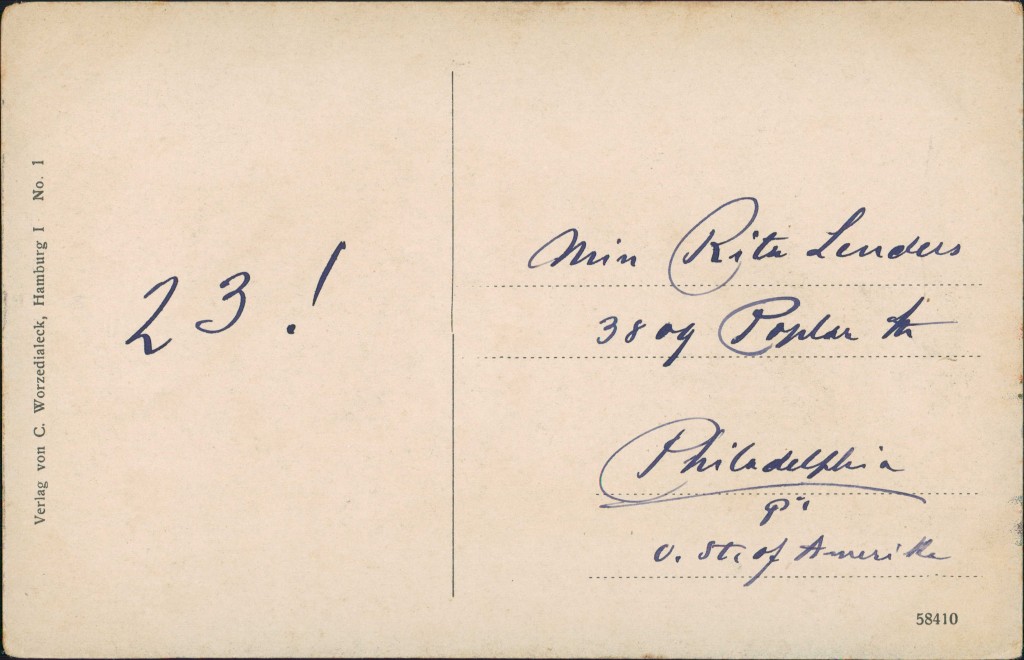 Verlag von C. Worzedialeck, Hamburg I No. 1
23!
Miss Rita Lenders
3809 Poplar Str
Philadelphia
Pa
U. St. of Amerika
58410